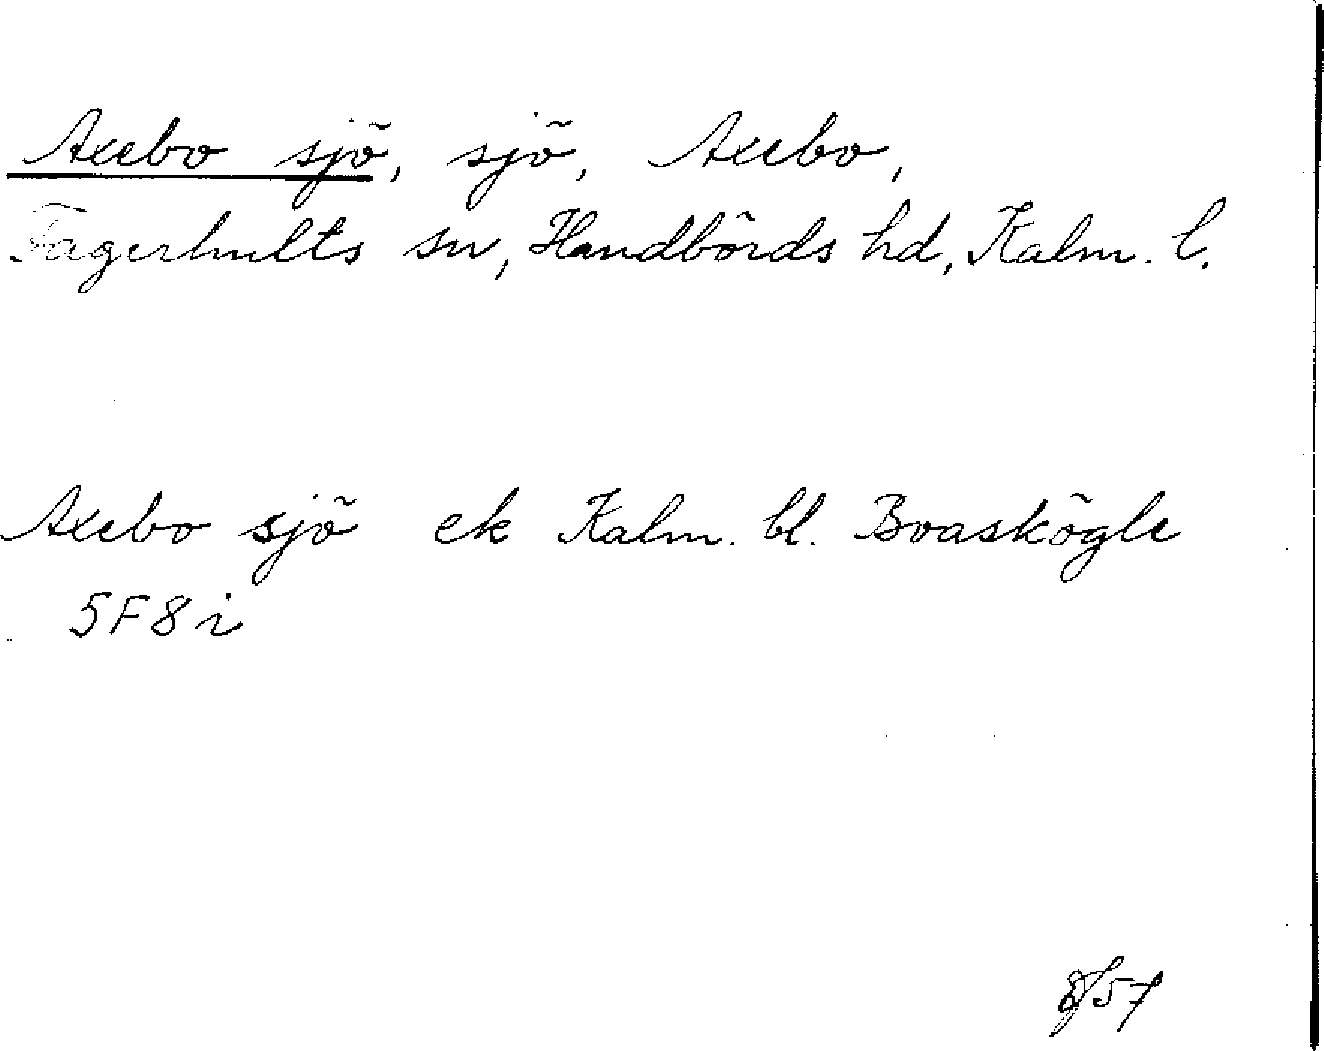 Axebo sjö, sjö, Axebo,
Fagerhults sn, Handbörds hd, Kalm. l.
Axebo sjö ek Kalm. bl. Boaskögle
5F8i
8/57